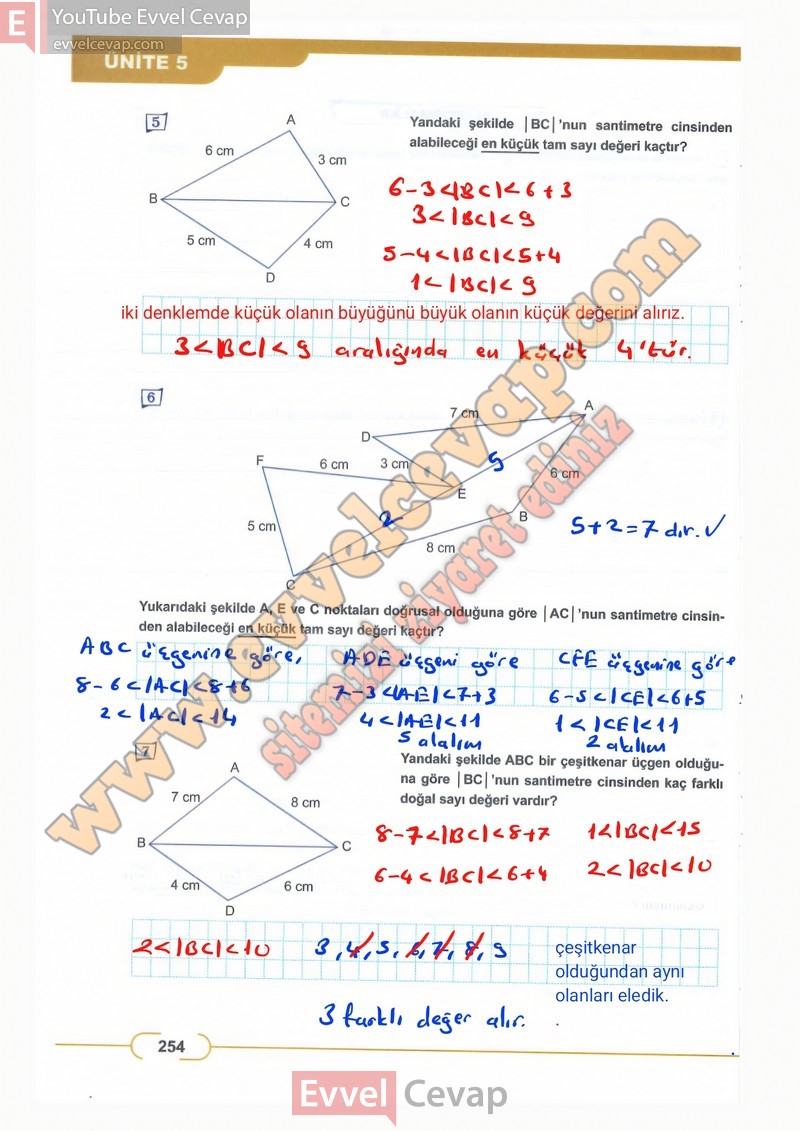 E YouTube Evvel Cevap
evvelcevap.com
ÜNİTE 5
5
A
6 cm
3 cm
B
C
5 cm
4 cm
D
Yandaki şekilde |BC| 'nun santimetre cinsinden
alabileceği en küçük tam sayı değeri kaçtır?
6-3<|BC|<6+3
3<|BC|<9
5-4<|BC|<5+4
1<|BC|<9
iki denklemde küçük olanın büyüğünü büyük olanın küçük değerini alırız.
3<|BC|<9 aralığında en küçük 4'tür.
6
7 cm
A
D
F
6 cm
3 cm
5
E
6 cm
5 cm
2
B
8 cm
C
5+2=7 dır. ✓
Yukarıdaki şekilde A, E ve C noktaları doğrusal olduğuna göre |AC| 'nun santimetre cinsin-
den alabileceği en küçük tam sayı değeri kaçtır?
ABC üçgenine göre,
8-6<|AC|<8+6
2<|AC|<14
ADE üçgeni göre
7-3<|AE|<7+3
4<|AE|<11
5 alalım
CFE üçgenine göre
6-5<|CE|<6+5
1<|CE|<11
2 alalım
7
A
7 cm
8 cm
B
C
4 cm
6 cm
D
Yandaki şekilde ABC bir çeşitkenar üçgen olduğu-
na göre |BC| 'nun santimetre cinsinden kaç farklı
doğal sayı değeri vardır?
8-7<|BC|<8+7 1<|BC|<15
6-4<|BC|<6+4 2<|BC|<10
2<|BC|<10 3,4,5,6,7,8,9
çeşitkenar
olduğundan aynı
olanları eledik.
3 farklı değer alır.
254
www.evvelcevap.com
sitemizi ziyaret ediniz
Evvel Cevap